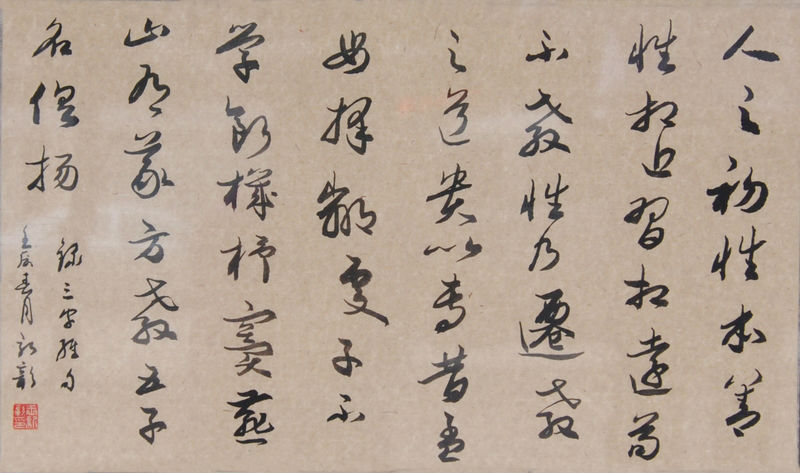 人之初性本善
性相近習相遠苟
不教性乃遷教
之道貴以專昔孟
母擇鄰處子不
学斷機杼竇燕
山有義方教五子
名俱揚
錄三字經句
壬辰春月